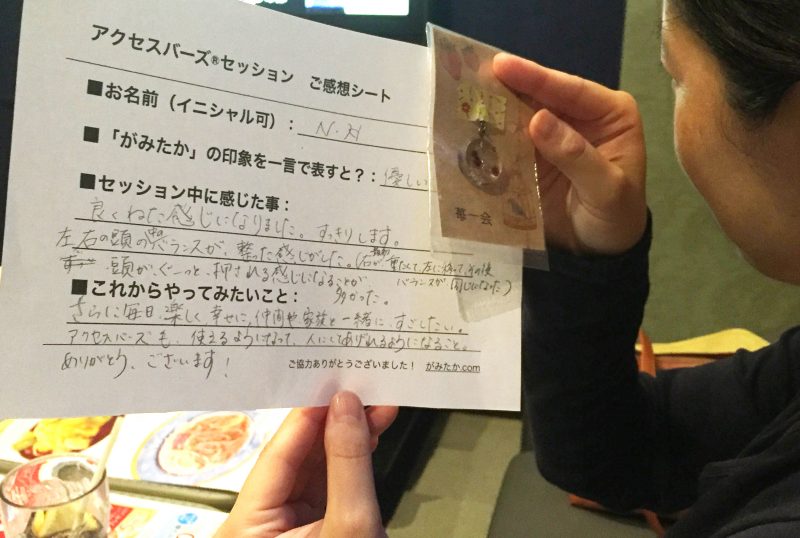 アクセスバーズ®セッション　ご感想シート
■お名前（イニシャル可）： N.H
■「がみたか」の印象を一言で表すと？： 優しい
■セッション中に感じた事：
良くねた感じになりました。すっきりします。
左右の頭のバランスが、整った感じがした。
頭が、ぐーっと、押される感じになることが
多かった。
バランスが同じになった)
■これからやってみたいこと：
さらに毎日、楽しく幸せに、仲間や家族と一緒に、すごしたい。
アクセスバーズも、使えるようになって、人にしてあげれるようになること。
ありがとう、ございます！
ご協力ありがとうございました！　がみたか.com
一会